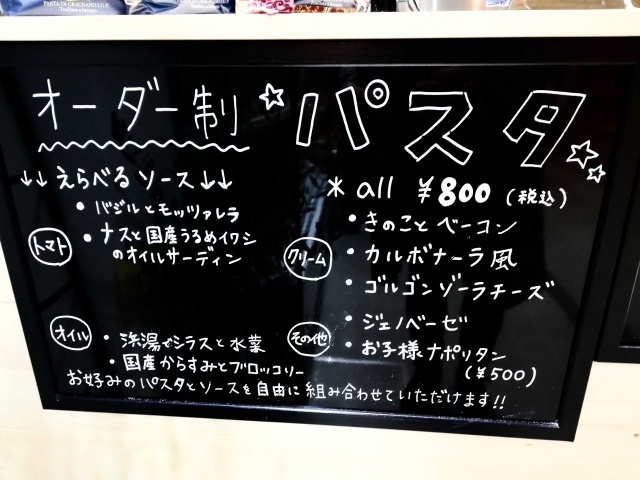 PASTA DI GRAGNANO I.G.P.
オーダー制 ☆パスタ☆☆
↓↓えらべるソース↓↓
* all ¥800 (税込)
トマト
・バジルとモッツァレラ
・ナスと国産うるめイワシ
のオイルサーディン
クリーム
・きのことベーコン
・カルボナーラ風
・ゴルゴンゾーラチーズ
オイル
・浜湯でシラスと水菜
・国産からすみとブロッコリー
その他
・ジェノベーゼ
・お子様ナポリタン
(¥500)
お好みのパスタとソースを自由に組み合わせていただけます!!